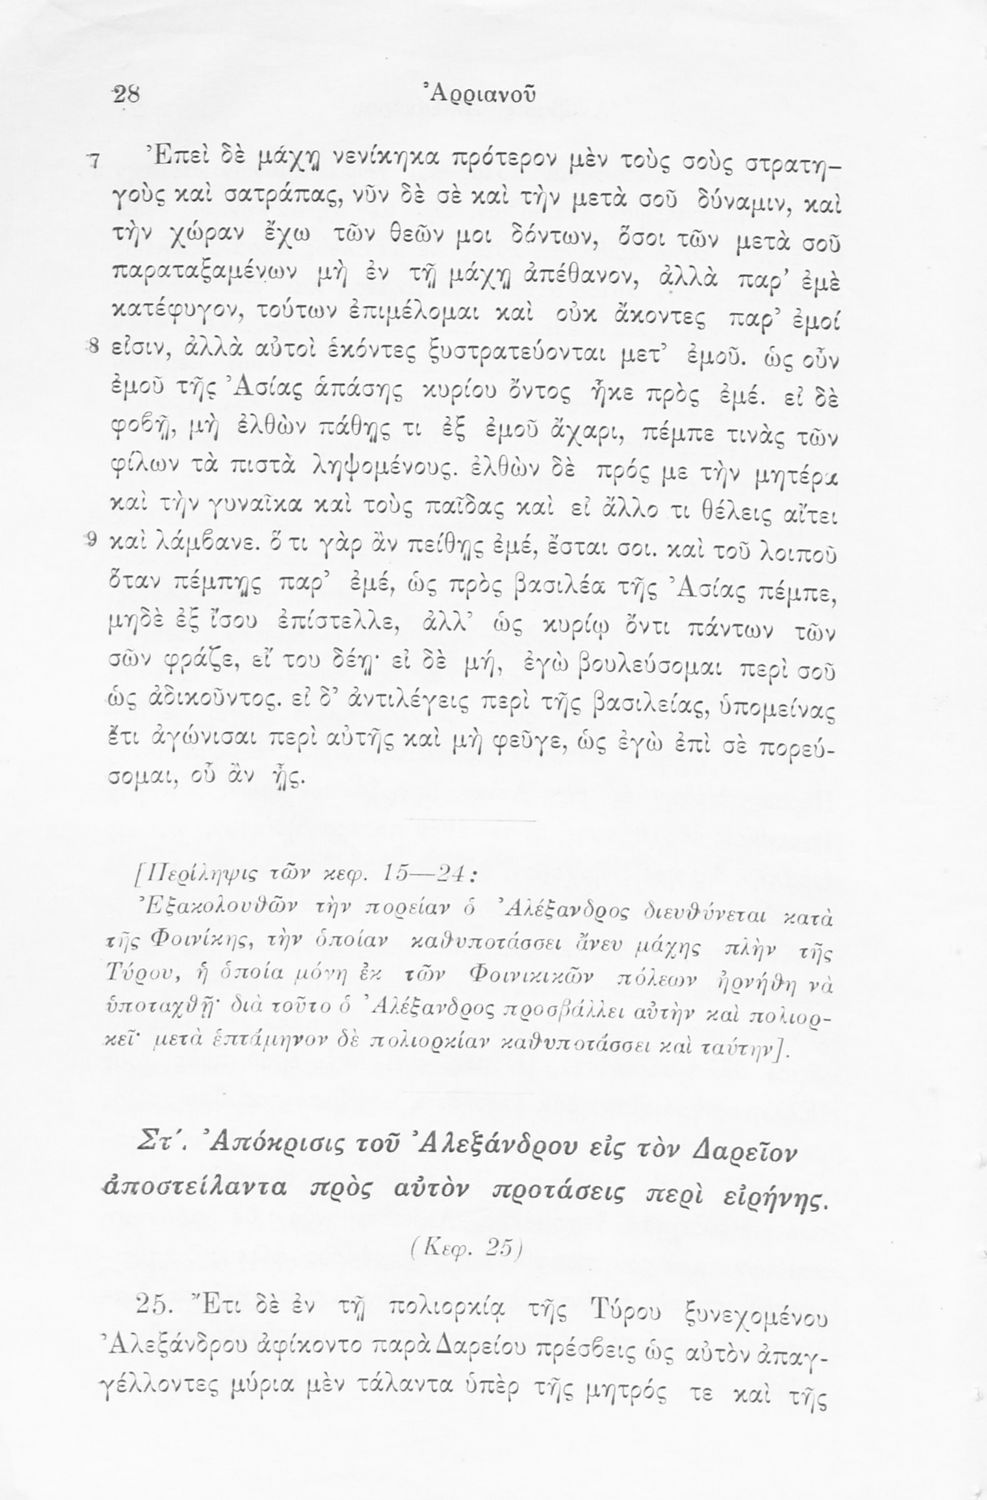 28 Ἀρριανοῦ
7 Ἐπεὶ δὲ μάχῃ νενίκηκα πρότερον μὲν τοὺς σοὺς στρατη-
γοὺς καὶ σατράπας, νῦν δὲ σὲ καὶ τὴν μετὰ σοῦ δύναμιν, καὶ
τὴν χώραν ἔχω τῶν θεῶν μοι δόντων, ὅσοι τῶν μετὰ σοῦ
παραταξαμένων μὴ ἐν τῇ μάχῃ ἀπέθανον, ἀλλὰ παρ’ ἐμὲ
κατέφυγον, τούτων ἐπιμέλομαι καὶ οὐκ ἄκοντες παρ’ ἐμοί
8 εἰσιν, ἀλλὰ αὐτοὶ ἑκόντες ξυστρατεύονται μετ’ ἐμοῦ. ὡς οὖν
ἐμοῦ τῆς Ἀσίας ἁπάσης κυρίου ὄντος ἧκε πρὸς ἐμέ. εἰ δὲ
φοβῇ, μὴ ἐλθὼν πάθῃς τι ἐξ ἐμοῦ ἄχαρι, πέμπε τινὰς τῶν
φίλων τὰ πιστὰ ληψομένους. ἐλθὼν δὲ πρός με τὴν μητέρα
καὶ τὴν γυναῖκα καὶ τοὺς παῖδας καὶ εἰ ἄλλο τι θέλεις αἴτει
9 καὶ λάμβανε. ὅ τι γὰρ ἂν πείθῃς ἐμέ, ἔσται σοι. καὶ τοῦ λοιποῦ
ὅταν πέμπῃς παρ’ ἐμέ, ὡς πρὸς βασιλέα τῆς Ἀσίας πέμπε,
μηδὲ ἐξ ἴσου ἐπίστελλε, ἀλλ’ ὡς κυρίῳ ὄντι πάντων τῶν
σῶν φράζε, εἴ του δέῃ· εἰ δὲ μή, ἐγὼ βουλεύσομαι περὶ σοῦ
ὡς ἀδικοῦντος. εἰ δ’ ἀντιλέγεις περὶ τῆς βασιλείας, ὑπομείνας
ἔτι ἀγώνισαι περὶ αὐτῆς καὶ μὴ φεῦγε, ὡς ἐγὼ ἐπὶ σὲ πορεύ-
σομαι, οὗ ἂν ᾖς.
[Περίληψις τῶν κεφ. 15—24:
Ἐξακολουθῶν τὴν πορείαν ὁ Ἀλέξανδρος διευθύνεται κατὰ
τῆς Φοινίκης, τὴν ὁποίαν καθυποτάσσει ἄνευ μάχης πλὴν τῆς
Τύρου, ἡ ὁποία μόνη ἐκ τῶν Φοινικικῶν πόλεων ἠρνήθη νὰ
ὑποταχθῇ· διὰ τοῦτο ὁ Ἀλέξανδρος προσβάλλει αὐτὴν καὶ πολιορ-
κεῖ· μετὰ ἑπτάμηνον δὲ πολιορκίαν καθυποτάσσει καὶ ταύτην].
Στ΄. Ἀπόκρισις τοῦ Ἀλεξάνδρου εἰς τὸν Δαρεῖον
ἀποστείλαντα πρὸς αὐτὸν προτάσεις περὶ εἰρήνης.
(Κεφ. 25)
25. Ἔτι δὲ ἐν τῇ πολιορκίᾳ τῆς Τύρου ξυνεχομένου
Ἀλεξάνδρου ἀφίκοντο παρὰ Δαρείου πρέσβεις ὡς αὐτὸν ἀπαγ-
γέλλοντες μύρια μὲν τάλαντα ὑπὲρ τῆς μητρός τε καὶ τῆς